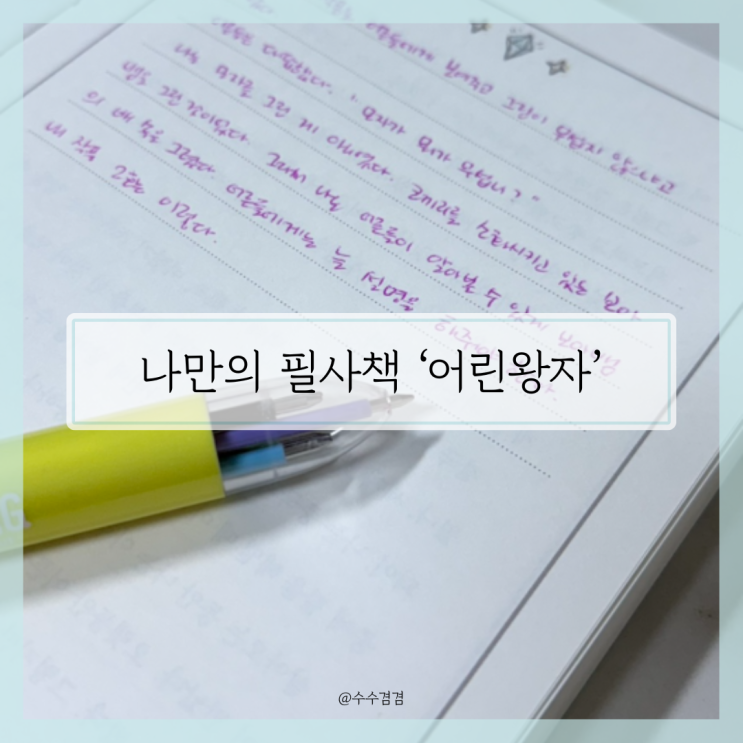 보여주고 그림이 무섭지 않으냐고
"모자가 뭐가 무섭니?"
나는 모자를 그린 게 아니었다. 코끼리를 소화시키고 있는 보아
뱀을 그린 것이었다. 그래서 나는 어른들이 알아볼 수 있게 보아뱀
의 배 속을 그렸다. 어른들에게는 늘 설명을
내 작품 2호는 이렇다.
나만의 필사책 ‘어린왕자’
G
@수수겸겸